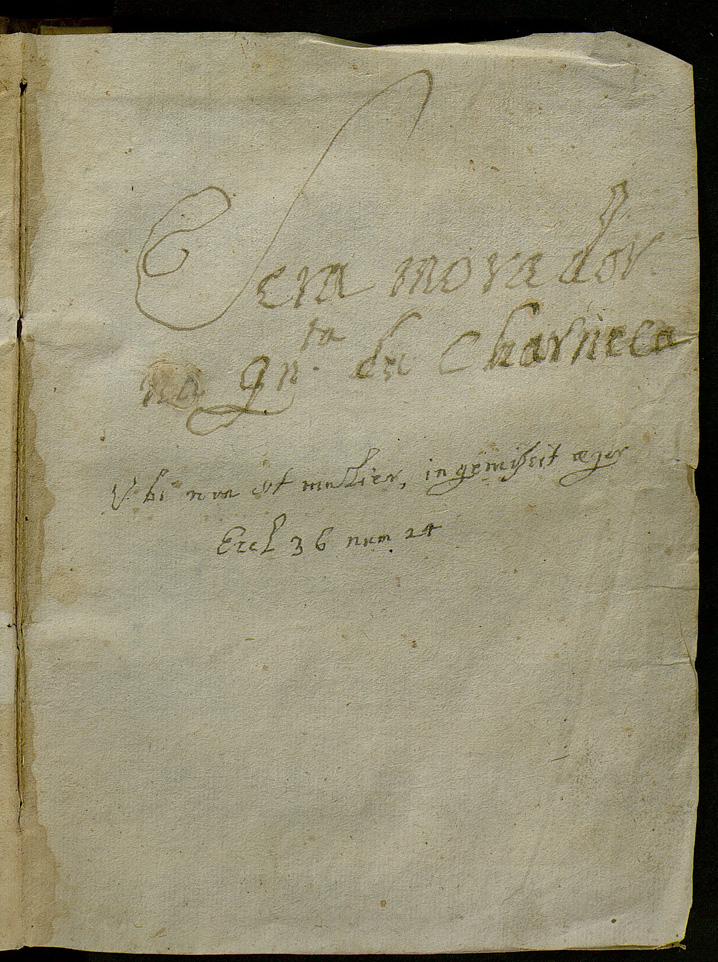 Sera morador
na qn.ta da Charneca
Vbi non est mulier, ingemiscit æger
Eccl 36 num 24